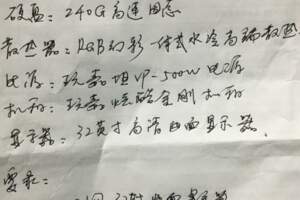 硬盘：240G高速固态
散热器：RGB幻彩一体式水冷高端散热
电源：玩嘉坦VP-500W电源
机箱：玩嘉炫酷金刚机箱
显示器：32英寸高清曲面显示器
要求：